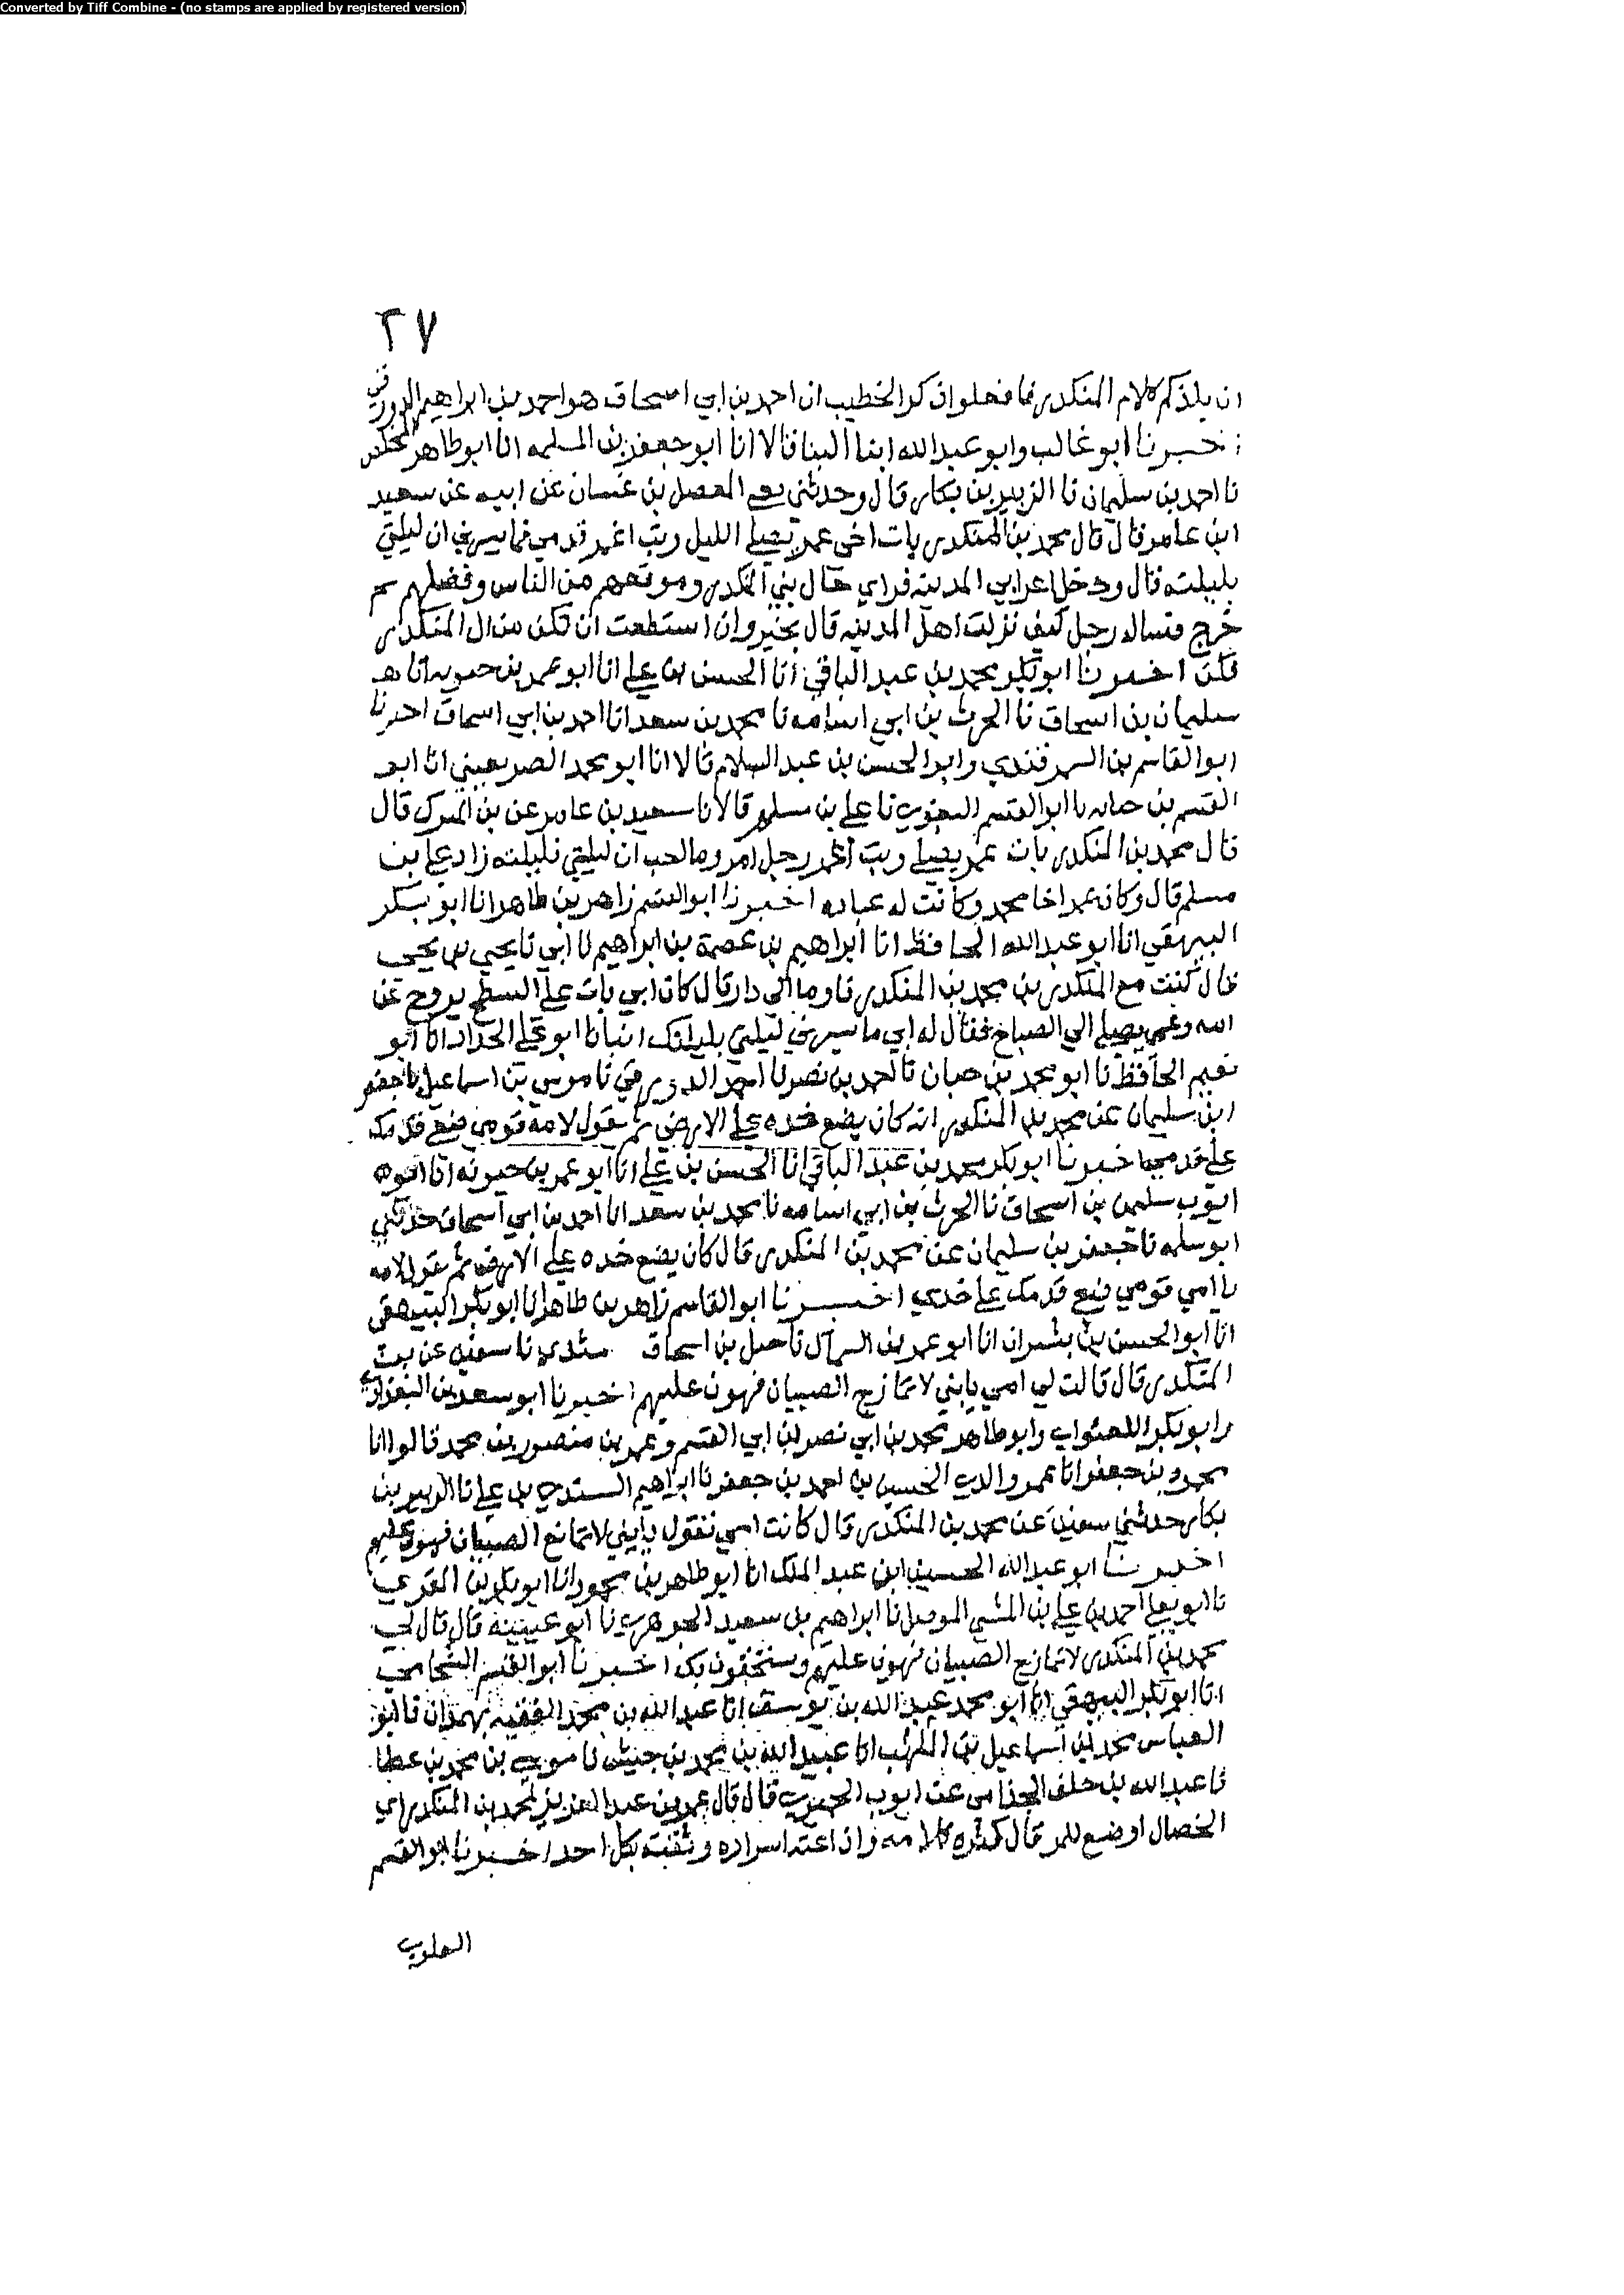 Converted by Tiff Combine - (no stamps are applied by registered version)
٢٧
ان يلذكم كلام المنكدر فما فعلوا ذكر الخطيب ان احمد بن ابي اسحاق هو احمد بن ابراهيم الدورقي
اخبرنا ابو غالب وابو عبد الله ابنا البنا قالا انا ابو جعفر بن المسلمه انا ابو طاهر المخلص
نا احمد بن سليمان نا الزبير بن بكار قال وحدثني المفضل بن غسان عن ابيه عن سعيد
ابن عامر قال قال محمد بن المنكدر بات اخي عمر يصلي الليل وبت اغمز قدمي فما يسرني ان ليلتي
بليلته قال ودخل اعرابي المدينه فراي حال بني المنكدر وموقعهم من الناس وفضلهم ثم
خرج فساله رجل كيف تركت اهل المدينه قال بخير وان استطعت ان تكن من ال المنكدر
فكن اخبرنا ابو بكر محمد بن عبد الباقي انا الحسن بن علي انا ابو عمر بن حيويه انا
سليمان بن اسحاق نا الحرث بن ابي اسامه نا محمد بن سعد انا احمد بن ابي اسحاق اخبرنا
ابو القاسم بن السمرقندي وابو الحسن بن عبد السلام قالا انا ابو محمد الصريفيني انا ابو
القسم بن حبابه نا ابو القسم البغوي نا علي بن مسلم قالا نا سعيد بن عامر عن بن المبرك قال
قال محمد بن المنكدر بات عمر يصلي وبت اغمز رجل امي وما احب ان ليلتي بليلته زاد علي بن
مسلم قال وكان عمر اخا محمد وكانت له عباده اخبرنا ابو القسم زاهر بن طاهر انا ابو بكر
البيهقي انا ابو عبد الله الحافظ انا ابراهيم بن عصمة بن ابراهيم نا ابي نا يحيى بن يحيى
قال كنت مع المنكدر بن محمد بن المنكدر فاوما الي دار قال كان ابي بات علي السطح يروح عن
امه وعمي يصلي الي الصباح فقال له ابي ما يسرني ليلتي بليلتك انبانا ابو علي الحداد انا ابو
نعيم الحافظ نا ابو محمد بن حيان نا احمد بن نصر نا احمد الدورقي نا موسى بن اسماعيل نا جعفر
ابن سليمان عن محمد بن المنكدر انه كان يضع خده علي الارض ثم يقول لامه قومي ضعي قدمك
علي خدي اخبرنا ابو بكر محمد بن عبد الباقي انا الحسن بن علي انا ابو عمر بن حيويه انا ابو
ايوب سليمن بن اسحاق نا الحرث بن ابي اسامه نا محمد بن سعد انا احمد بن ابي اسحاق حدثني
ابو سلمه نا جعفر بن سليمان عن محمد بن المنكدر قال كان يضع خده علي الارض ثم يقول لامه
يا امي قومي ضعي قدمك علي خدي اخبرنا ابو القاسم زاهر بن طاهر انا ابو بكر البيهقي
انا ابو الحسن بن بشران انا ابو عمر بن السماك نا حنبل بن اسحاق نا سفين عن بن
المنكدر قال قالت لي امي يا بني لا تمازح الصبيان فتهون عليهم اخبرنا ابو سعد بن البغدادي
وابو بكر اللفتواني وابو طاهر محمد بن ابي نصر بن ابي القسم وعمر بن منصور بن محمد قالوا انا
محمود بن جعفر انا عم والدي الحسين بن احمد بن جعفر نا ابراهيم السندي بن علي نا الزبير بن
بكار حدثني سفين عن محمد بن المنكدر قال كانت امي تقول يا بني لا تمازح الصبيان فتهون عليهم
اخبرنا ابو عبد الله الحسين ابن عبد الملك انا ابو طاهر بن محمود انا ابو بكر بن المقري
نا ابو يعلي احمد بن علي بن المثنى الموصلي نا ابراهيم بن سعيد الجوهري نا ابو عيينه قال قال لي
محمد بن المنكدر لا تمازح الصبيان فتهون عليهم ويستخفون بك اخبرنا ابو القسم الشحامي
انا ابو بكر البيهقي انا ابو محمد عبد الله بن يوسف انا عبد الله بن محمد الفقيه بهمذان نا ابو
العباس محمد بن اسماعيل بن المهلب انا عبيد الله بن محمد بن حنيش نا موسى بن محمد بن عطا
نا عبد الله بن خلف الجذامي عن ايوب الحميري قال قال عمر بن عبد العزيز لمحمد بن المنكدر اي
الخصال اوضع للمر قال كثره كلامه واذاعته اسراره وثقته بكل احد اخبرنا ابو القسم
العلوي